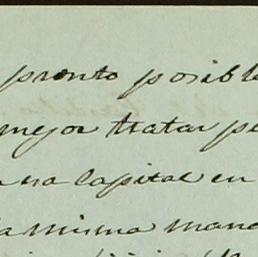 pronto posible
mejor tratar pe
na capital en
la misma mane